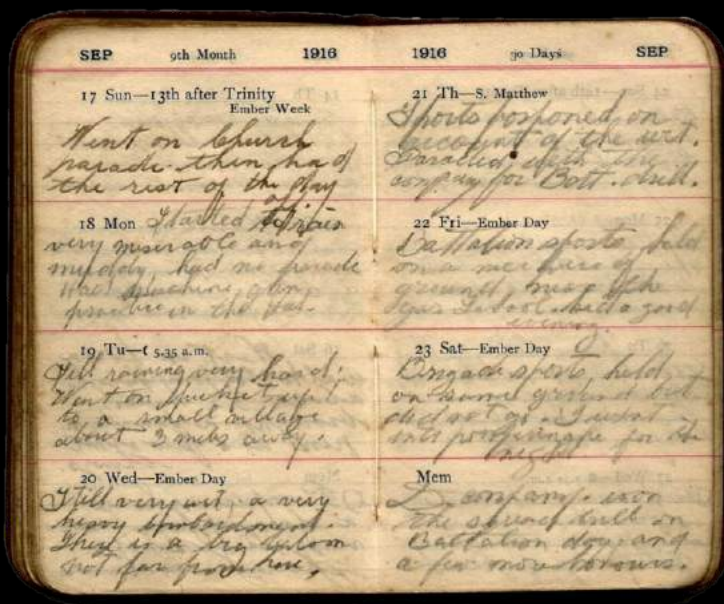 SEP 9th Month 1916
17 Sun—13th after Trinity
Ember Week
Went on Church
parade then had
the rest of the day
off
18 Mon Started to rain
very miserable and
muddy, had no parade
was machine gun
practice in the
19 Tu—☾ 5.35 a.m.
Still raining very hard.
Went on picket up
to a small village
about 3 miles away.
20 Wed—Ember Day
Still very wet, a very
heavy bombardment.
There is a big baloon
not far from here.
1916 30 Days SEP
21 Th—S. Matthew
Sports posponed on
account of the wet.
Paraded with the
company for Batt. drill.
22 Fri—Ember Day
Battalion sports held
on a nice piece of
ground near the
Gas School. had a good
evening.
23 Sat—Ember Day
Brigade sports held
on same ground but
did not go. I went
into for the
night
Mem
D. company. won
the drill on
Battalion day and
a few more honours.